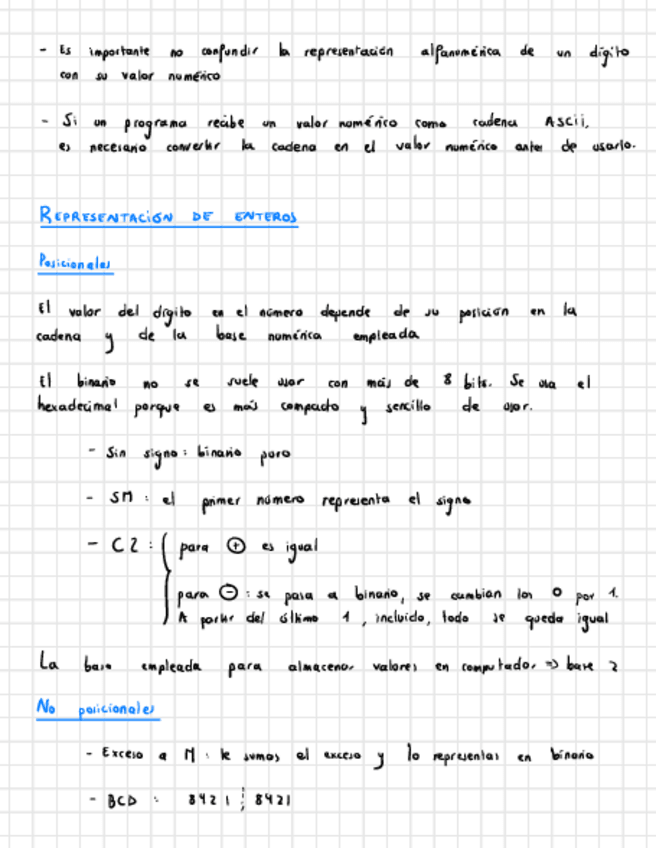 - Es importante no confundir la representación alfanumérica de un dígito
con su valor numérico
- Si un programa recibe un valor numérico como cadena ASCII,
es necesario convertir la cadena en el valor numérico antes de usarlo.
REPRESENTACIÓN DE ENTEROS
Posicionales
El valor del dígito en el número depende de su posición en la
cadena y de la base numérica empleada
El binario no se suele usar con más de 8 bits. Se usa el
hexadecimal porque es más compacto y sencillo de usar.
- Sin signo: binario puro
- SM: el primer número representa el signo
- C2: { para ⊕ es igual
para ⊖: se pasa a binario, se cambian los 0 por 1.
A partir del último 1, incluido, todo se queda igual
La base empleada para almacenar valores en computador => base 2
No posicionales
- Exceso a M: le sumas el exceso y lo representas en binario
- BCD: 8421 ¦ 8421